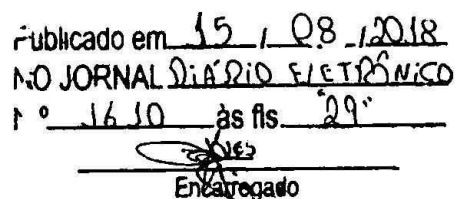 Publicado em 15 / 08 / 2018
NO JORNAL DIÁRIO ELETRÔNICO
Nº 1610 às fls. "29"
Encarregado